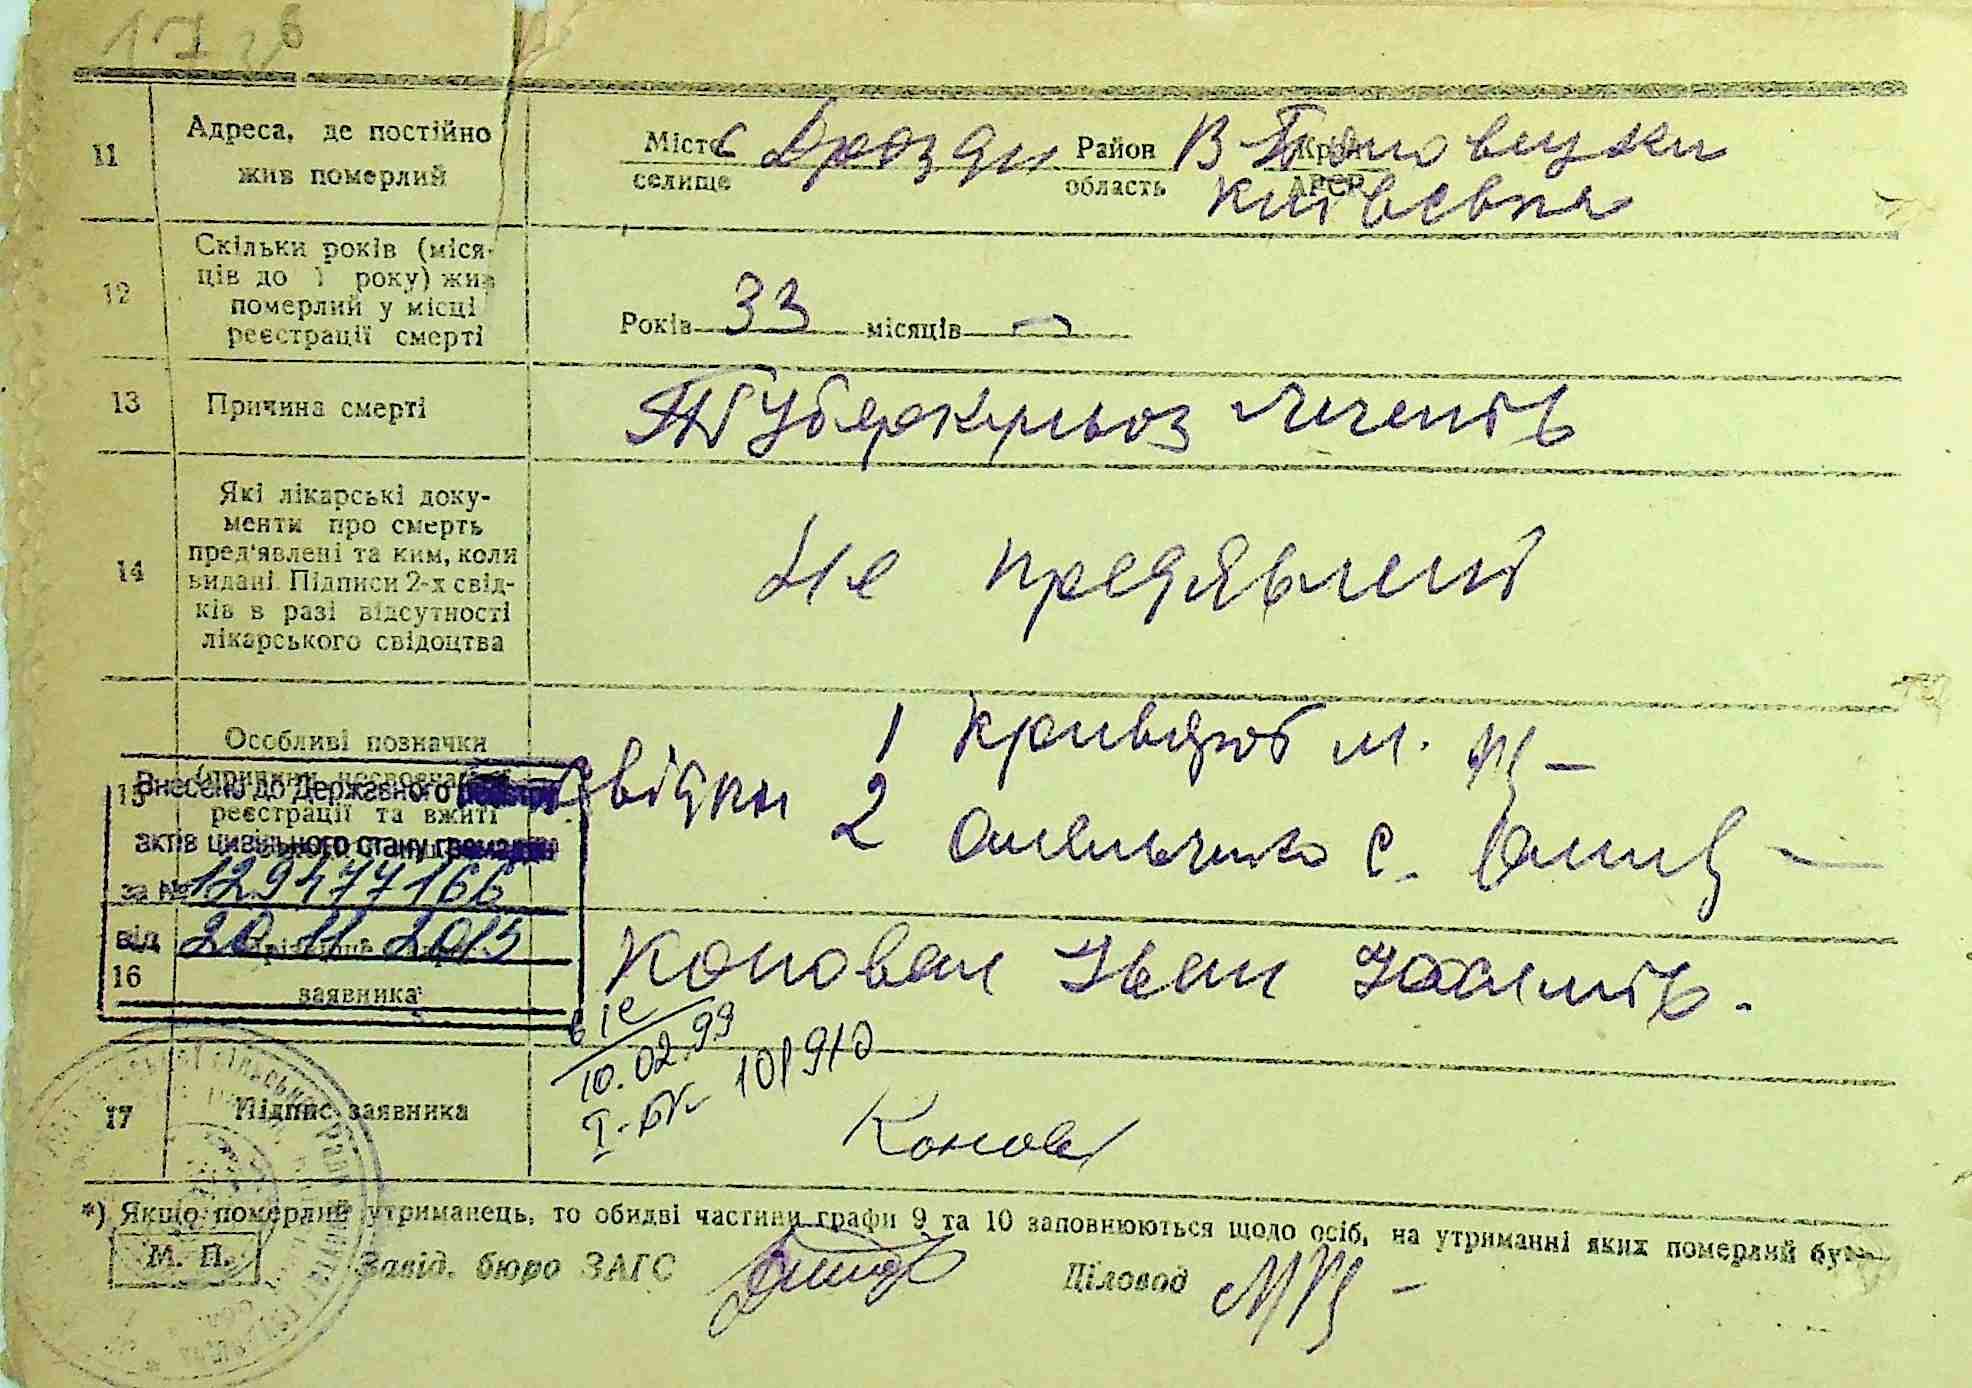 11 Адреса, де постійно жив померлий
Місто селище с Дрозди Район область В Половецки Київська
12 Скільки років (міся-
ців до 1 року) жив
померлий у місці
реєстрації смерті
Років 33 місяців —
13 Причина смерті
Туберкульоз легенів
14 Які лікарські доку-
менти про смерть
пред'явлені та ким, коли
видані. Підписи 2-х свід-
ків в разі відсутності
лікарського свідоцтва
Не предявлені
15 Особливі позначки
реєстрації та вжиті
Свідки 1 Кривдюб м.
2 Омельченко С.
Внесено до Державного
актів цивільного стану громадян
за № 129477166
від 20 11 2015
16 заявника
Коновал Іван
10.02.99
17 Підпис заявника
Конова
*) Якщо померлий утриманець, то обидві частини графи 9 та 10 заповнюються щодо осіб, на утриманні яких померлий був
М. П. Завід. бюро ЗАГС Діловод